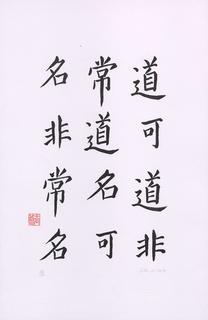 道可道非
常道名可
名非常名